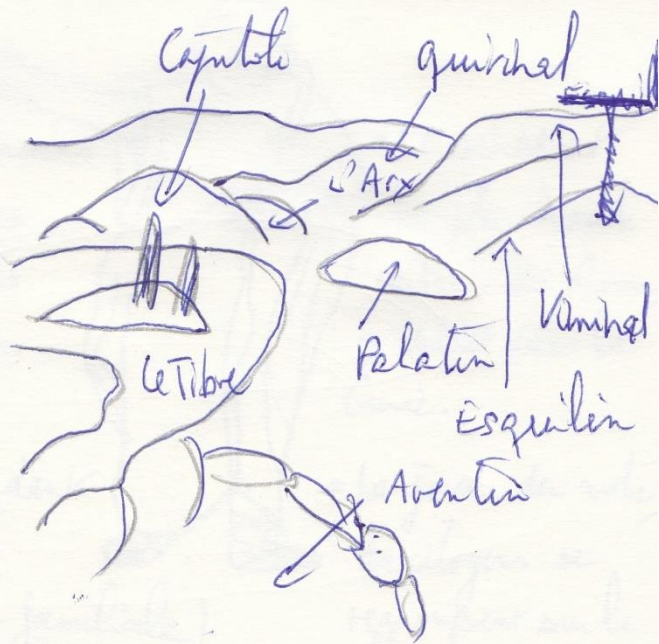 Capitole
Quirinal
l'Arx
Le Tibre
Palatin
Viminal
Esquilin
Aventin